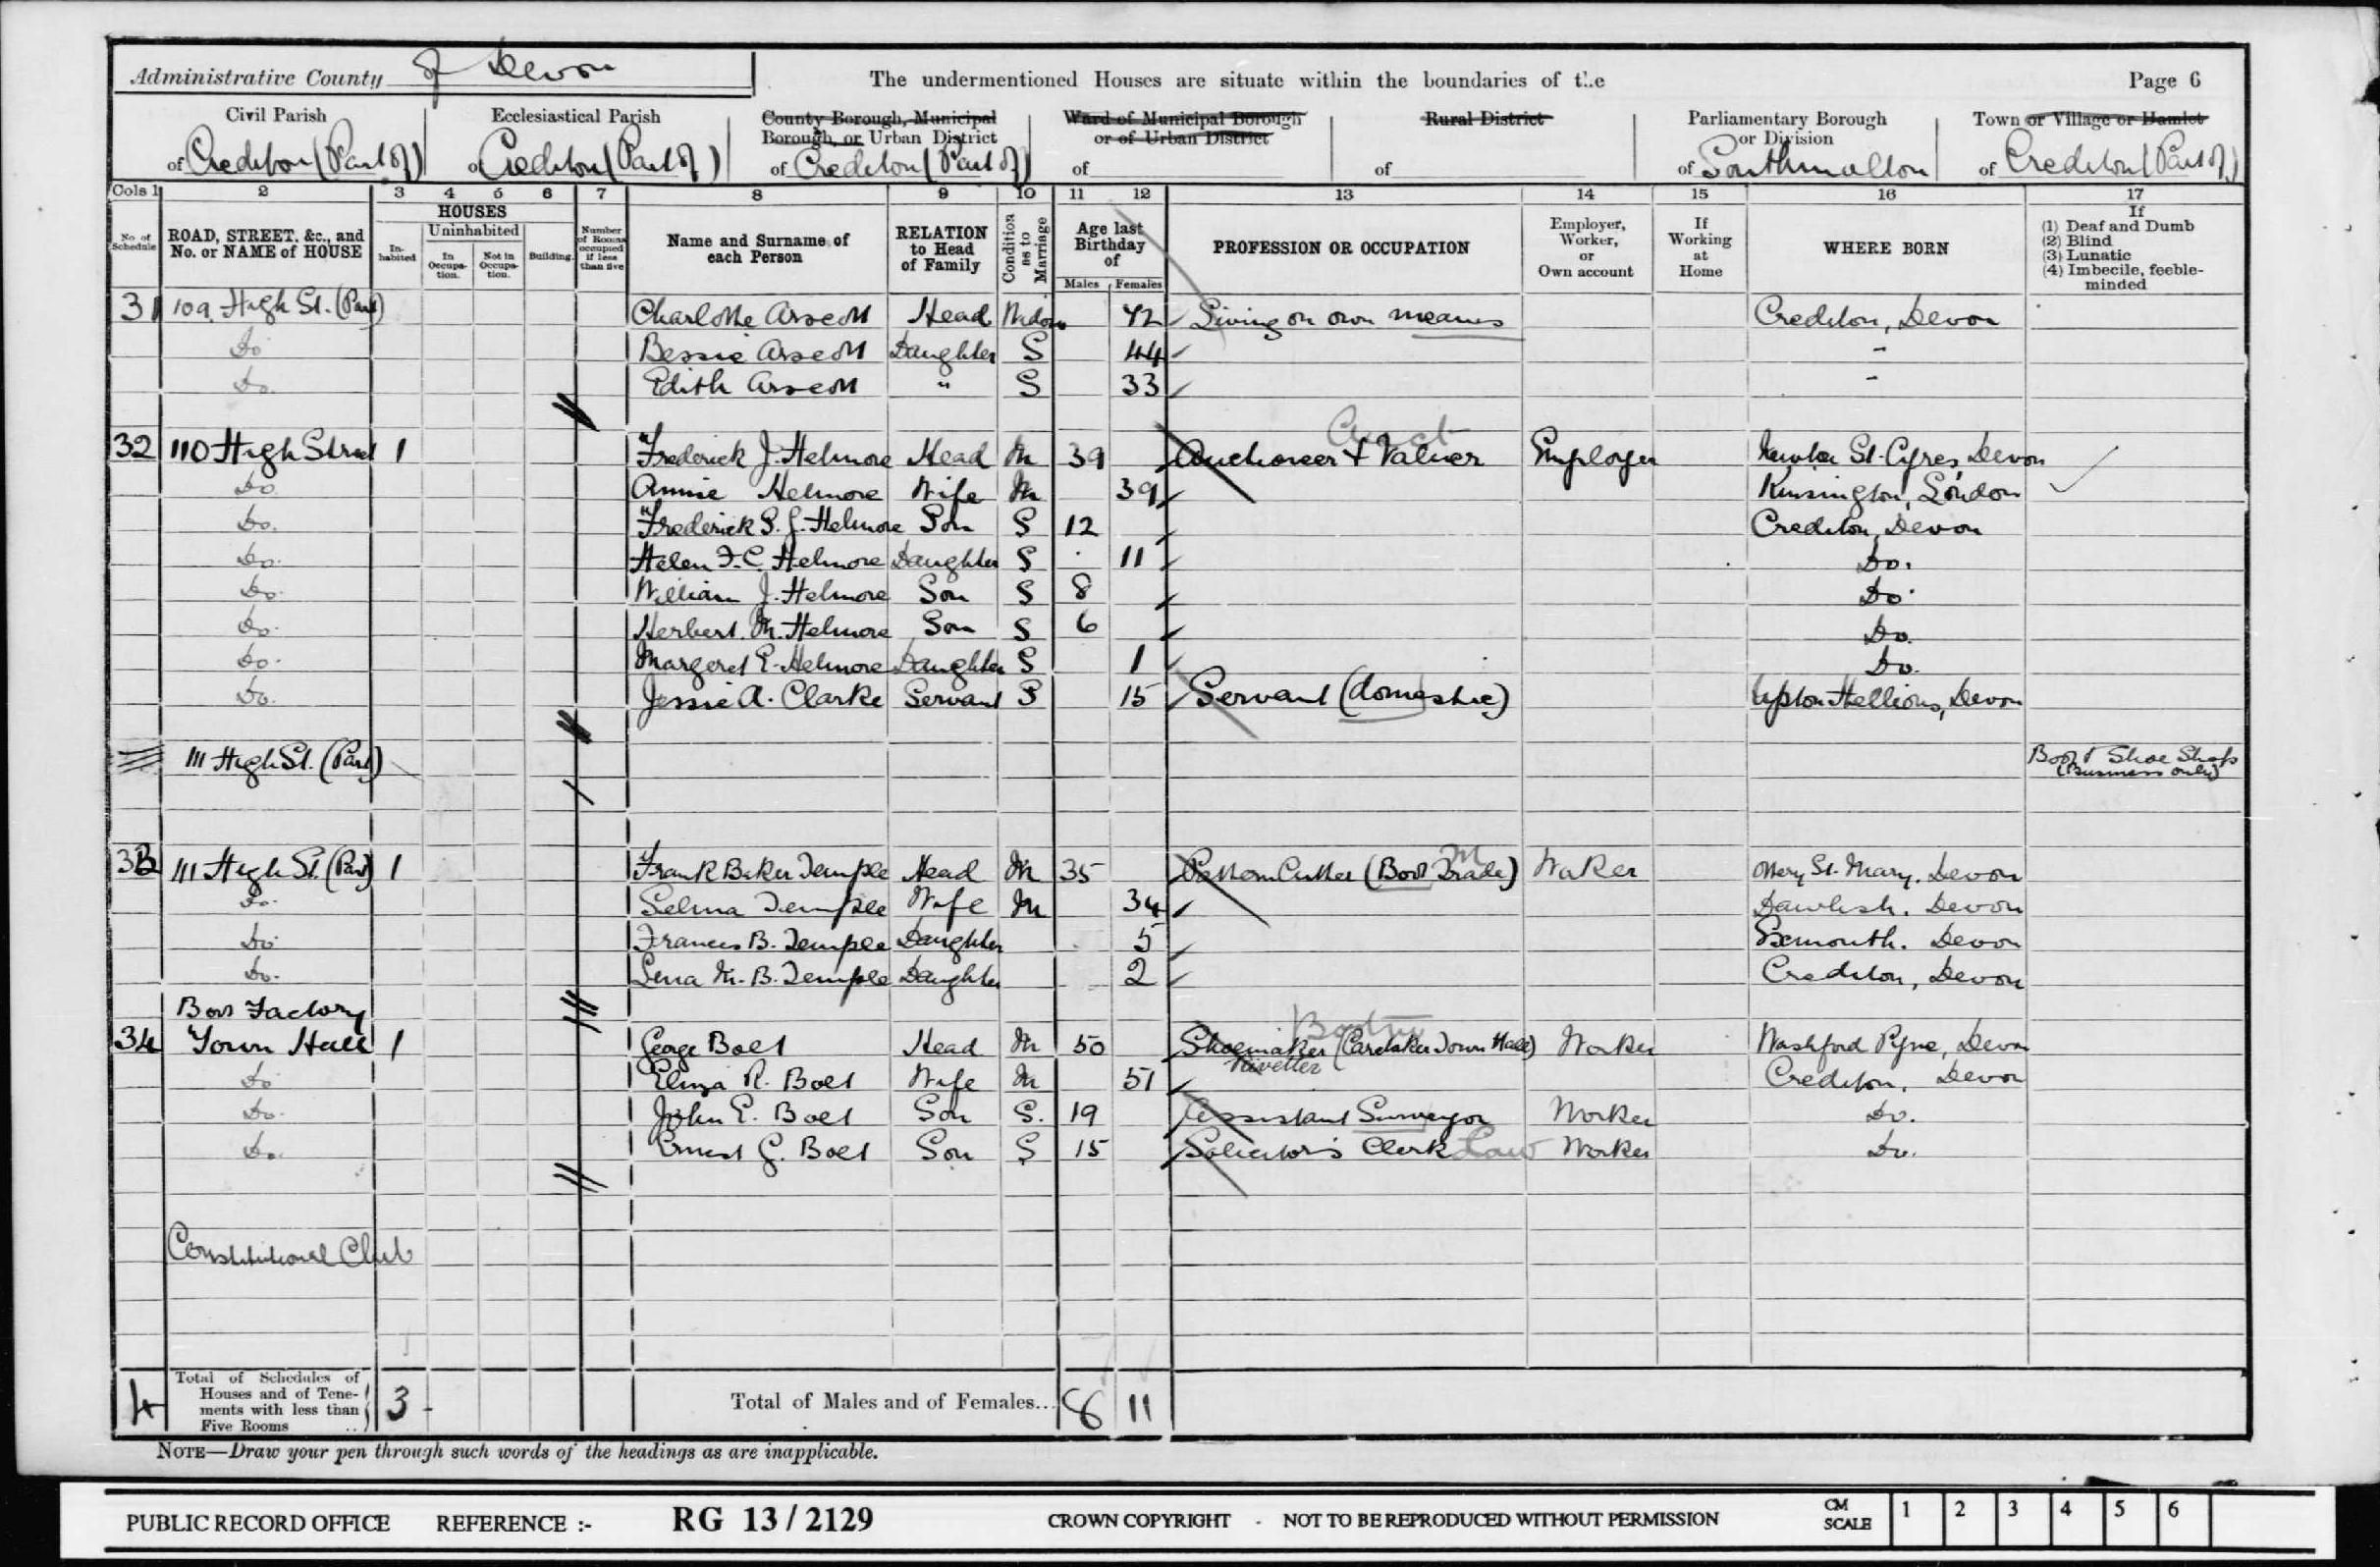 Administrative County of Devon
The undermentioned Houses are situate within the boundaries of the
Page 6
Civil Parish of Crediton (Part of)
Ecclesiastical Parish of Crediton (Part of)
County Borough, Municipal Borough, or Urban District of Crediton (Part of)
Ward of Municipal Borough or of Urban District of
Rural District of
Parliamentary Borough or Division of Southmolton
Town or Village or Hamlet of Crediton (Part of)
Cols 1 2 3 4 5 6 7 8 9 10 11 12 13 14 15 16 17
No. of Schedule
ROAD, STREET, &c., and No. or NAME of HOUSE
HOUSES
In-habited
Uninhabited
In Occupa-tion.
Not in Occupa-tion.
Building.
Number of Rooms occupied if less than five
Name and Surname of each Person
RELATION to Head of Family
Condition as to Marriage
Age last Birthday of
Males Females
PROFESSION OR OCCUPATION
Employer, Worker, or Own account
If Working at Home
WHERE BORN
If
(1) Deaf and Dumb
(2) Blind
(3) Lunatic
(4) Imbecile, feeble-minded
31 109 High St. (Part) Charlotte Arscott Head Widow 72 Living on own means Crediton, Devon
Do Bessie Arscott Daughter S 44 -
Do. Edith Arscott " S 33 -
32 110 High Street 1 Frederick J. Helmore Head M 39 Auctioneer & Valuer Employer Newton St. Cyres, Devon
Do Annie Helmore Wife M 39 Kensington, London
Do. Frederick S. J. Helmore Son S 12 Crediton, Devon
Do. Helen F. C. Helmore Daughter S 11 Do.
Do. William J. Helmore Son S 8 Do
Do. Herbert M. Helmore Son S 6 Do.
Do. Margaret E. Helmore Daughter S 1 Do.
Do. Jessie A. Clarke Servant S 15 Servant (domestic) Upton Hellions, Devon
111 High St. (Part) Boot & Shoe Shop
(Business only)
33 111 High St. (Part) 1 Frank Baker Temple Head M 35 Pattern Cutter (Boot Trade) M Worker Ottery St. Mary. Devon
Do. Selina Temple Wife M 34 Dawlish. Devon
Do Frances B. Temple Daughter 5 Exmouth. Devon
Do. Lena M. B. Temple Daughter 2 Crediton, Devon
Boot Factory
34 Town Hall 1 George Boet Head M 50 Shoemaker (Caretaker Town Hall) Worker Washford Pyne, Devon
Rivetter
Do Eliza R. Boet Wife M 51 Crediton, Devon
Do. John E. Boet Son S. 19 Assistant Surveyor Worker Do.
Do. Ernest G. Boet Son S 15 Solicitor's Clerk Law Worker Do.
Constitutional Club
4 Total of Schedules of Houses and of Tene-ments with less than Five Rooms 3 Total of Males and of Females... 8 11
NOTE—Draw your pen through such words of the headings as are inapplicable.
PUBLIC RECORD OFFICE REFERENCE :- RG 13/2129 CROWN COPYRIGHT - NOT TO BE REPRODUCED WITHOUT PERMISSION CM SCALE 1 2 3 4 5 6